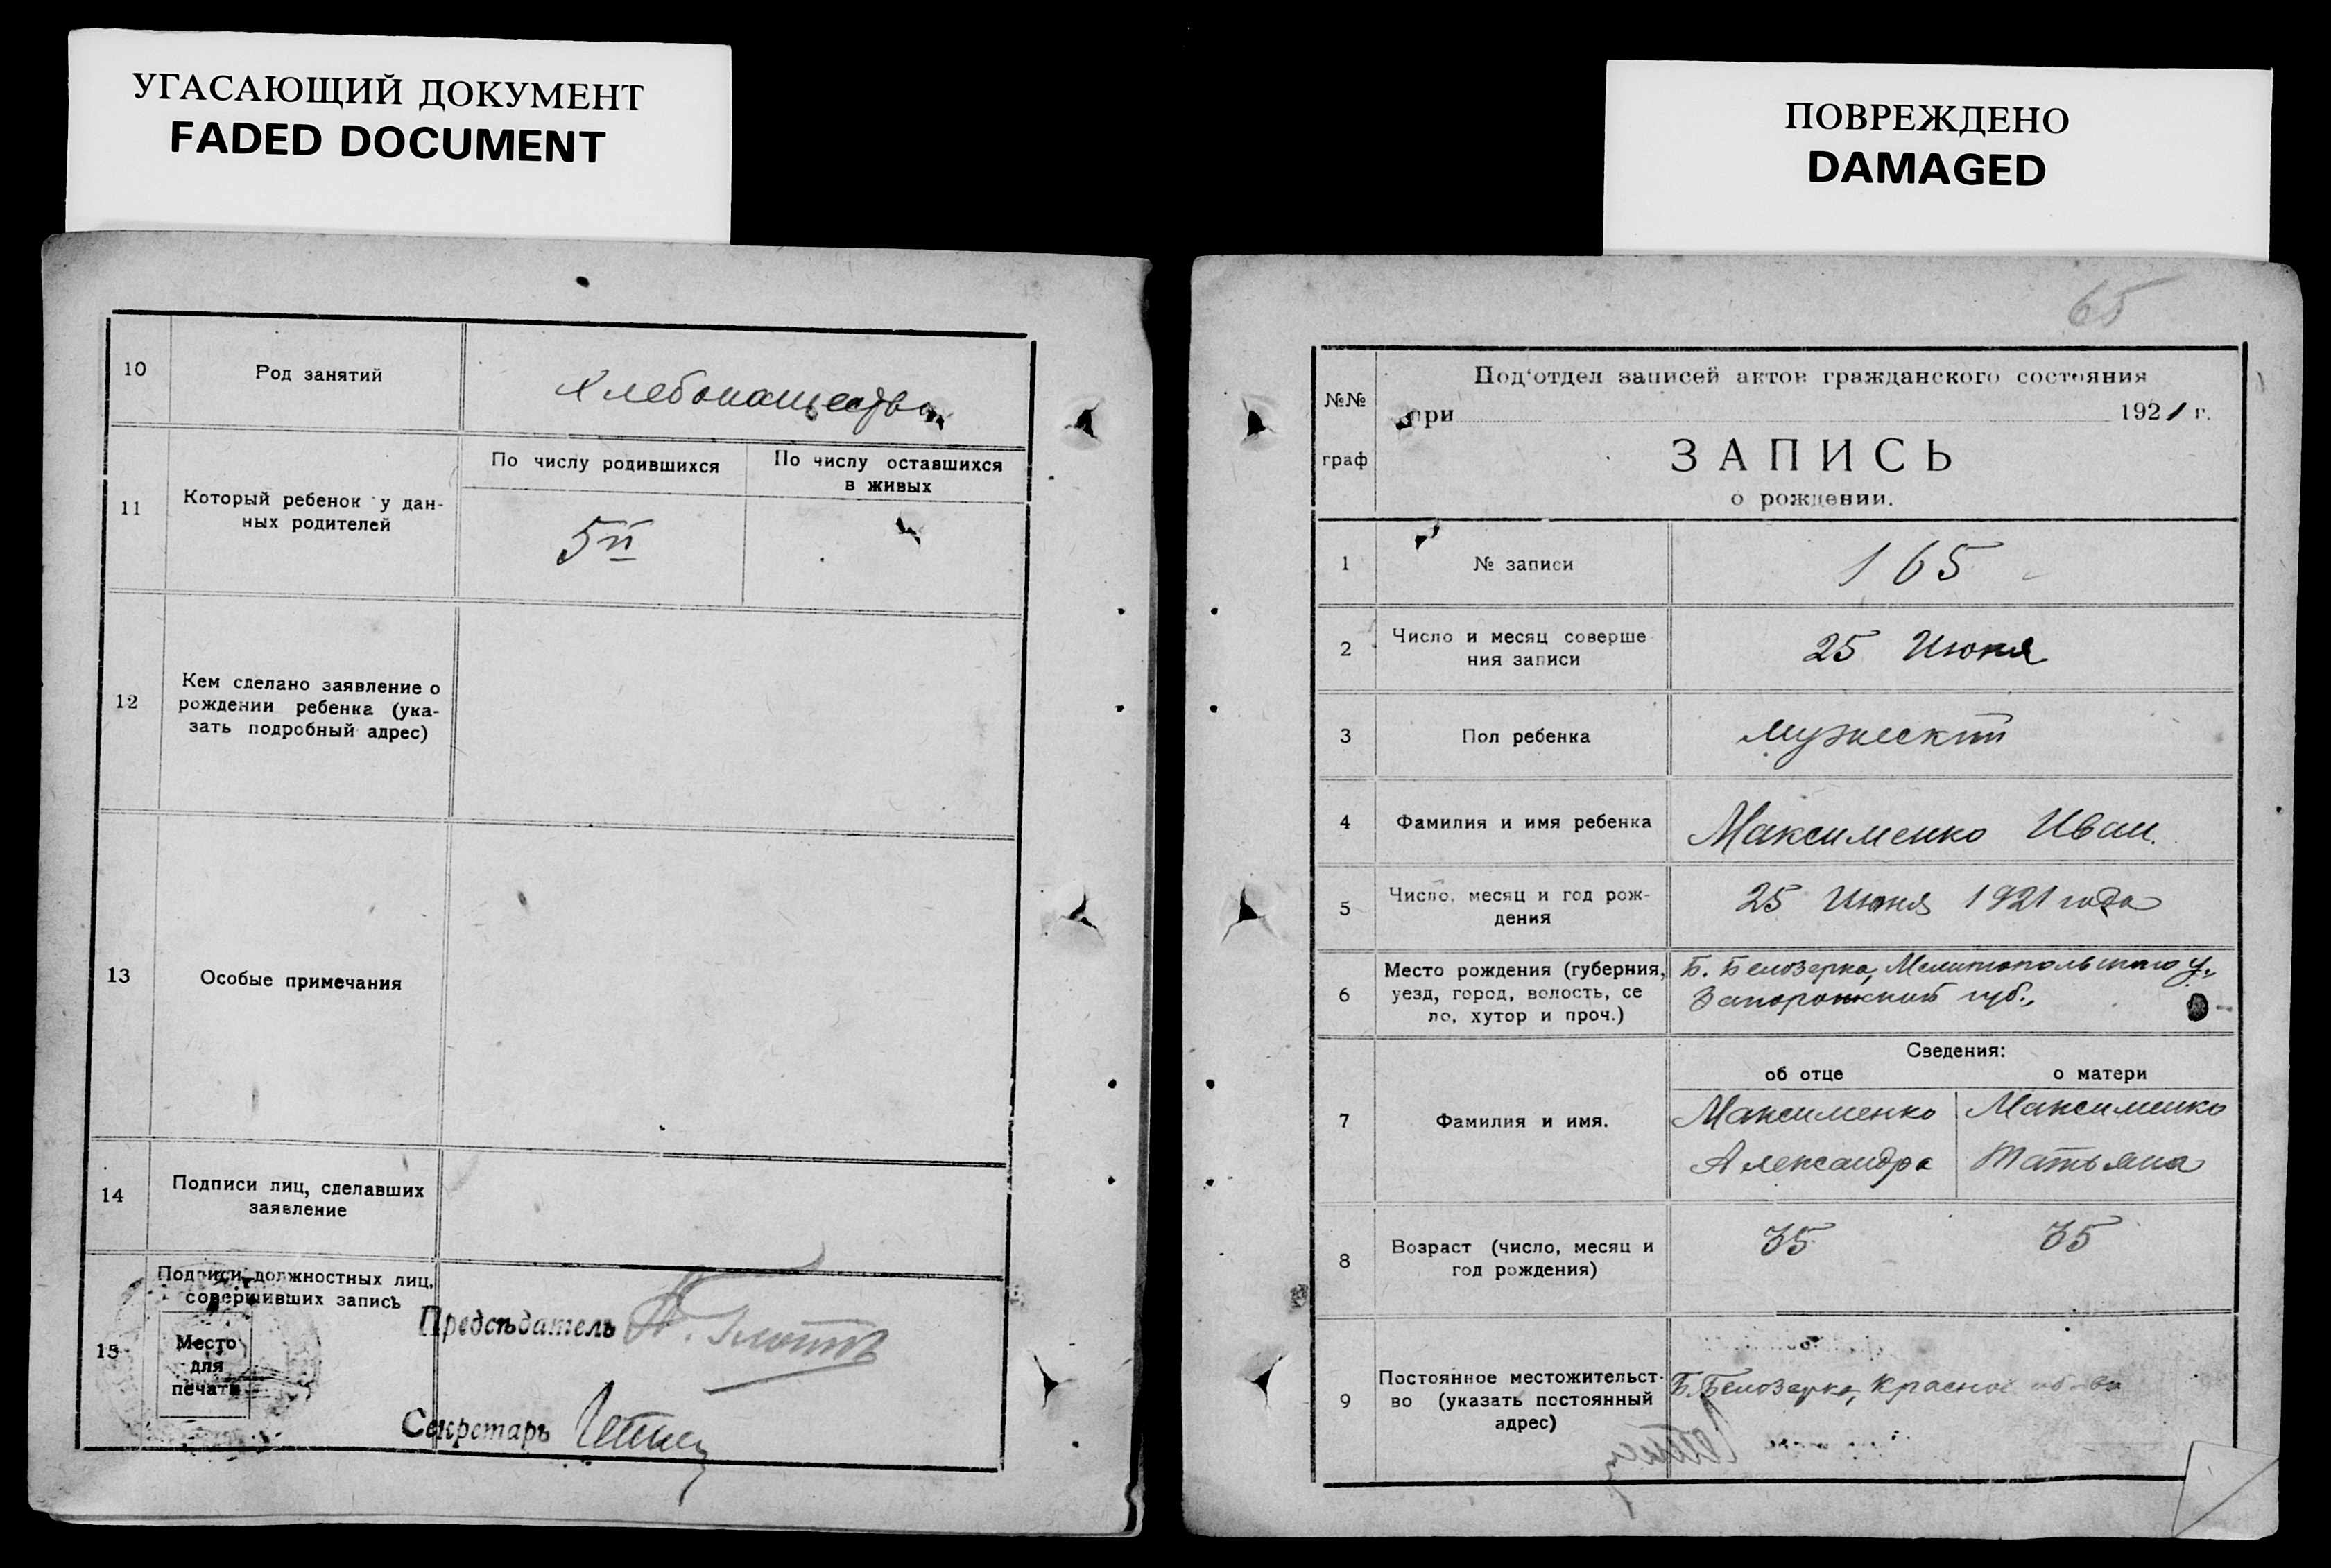 УГАСАЮЩИЙ ДОКУМЕНТ
FADED DOCUMENT
10
Род занятий
Хлебопашество
11
Который ребенок у дан-
ных родителей
По числу родившихся
5й
По числу оставшихся
в живых
12
Кем сделано заявление о
рождении ребенка (ука-
зать подробный адрес)
13
Особые примечания
14
Подписи лиц, сделавших
заявление
15
Подписи должностных лиц,
совершивших запись
Место
для
печати
Предсѣдатель
Секретарь
ПОВРЕЖДЕНО
DAMAGED
65
№№
граф
Под'отдел записей актов гражданского состояния
при 1921 г.
ЗАПИСЬ
о рождении.
1
№ записи
165
2
Число и месяц соверше
ния записи
25 Июня
3
Пол ребенка
мужеский
4
Фамилия и имя ребенка
Максименко Иван.
5
Число, месяц и год рож-
дения
25 Июня 1921 года
6
Место рождения (губерния,
уезд, город, волость, се
ло, хутор и проч.)
Б. Белозерка, Мелитопольского у.,
Запорожской губ.,
7
Фамилия и имя.
Сведения:
об отце
о матери
Максименко
Александра
Максименко
Татьяна
8
Возраст (число, месяц и
год рождения)
35
35
9
Постоянное местожительст-
во (указать постоянный
адрес)
Б. Белозерка,